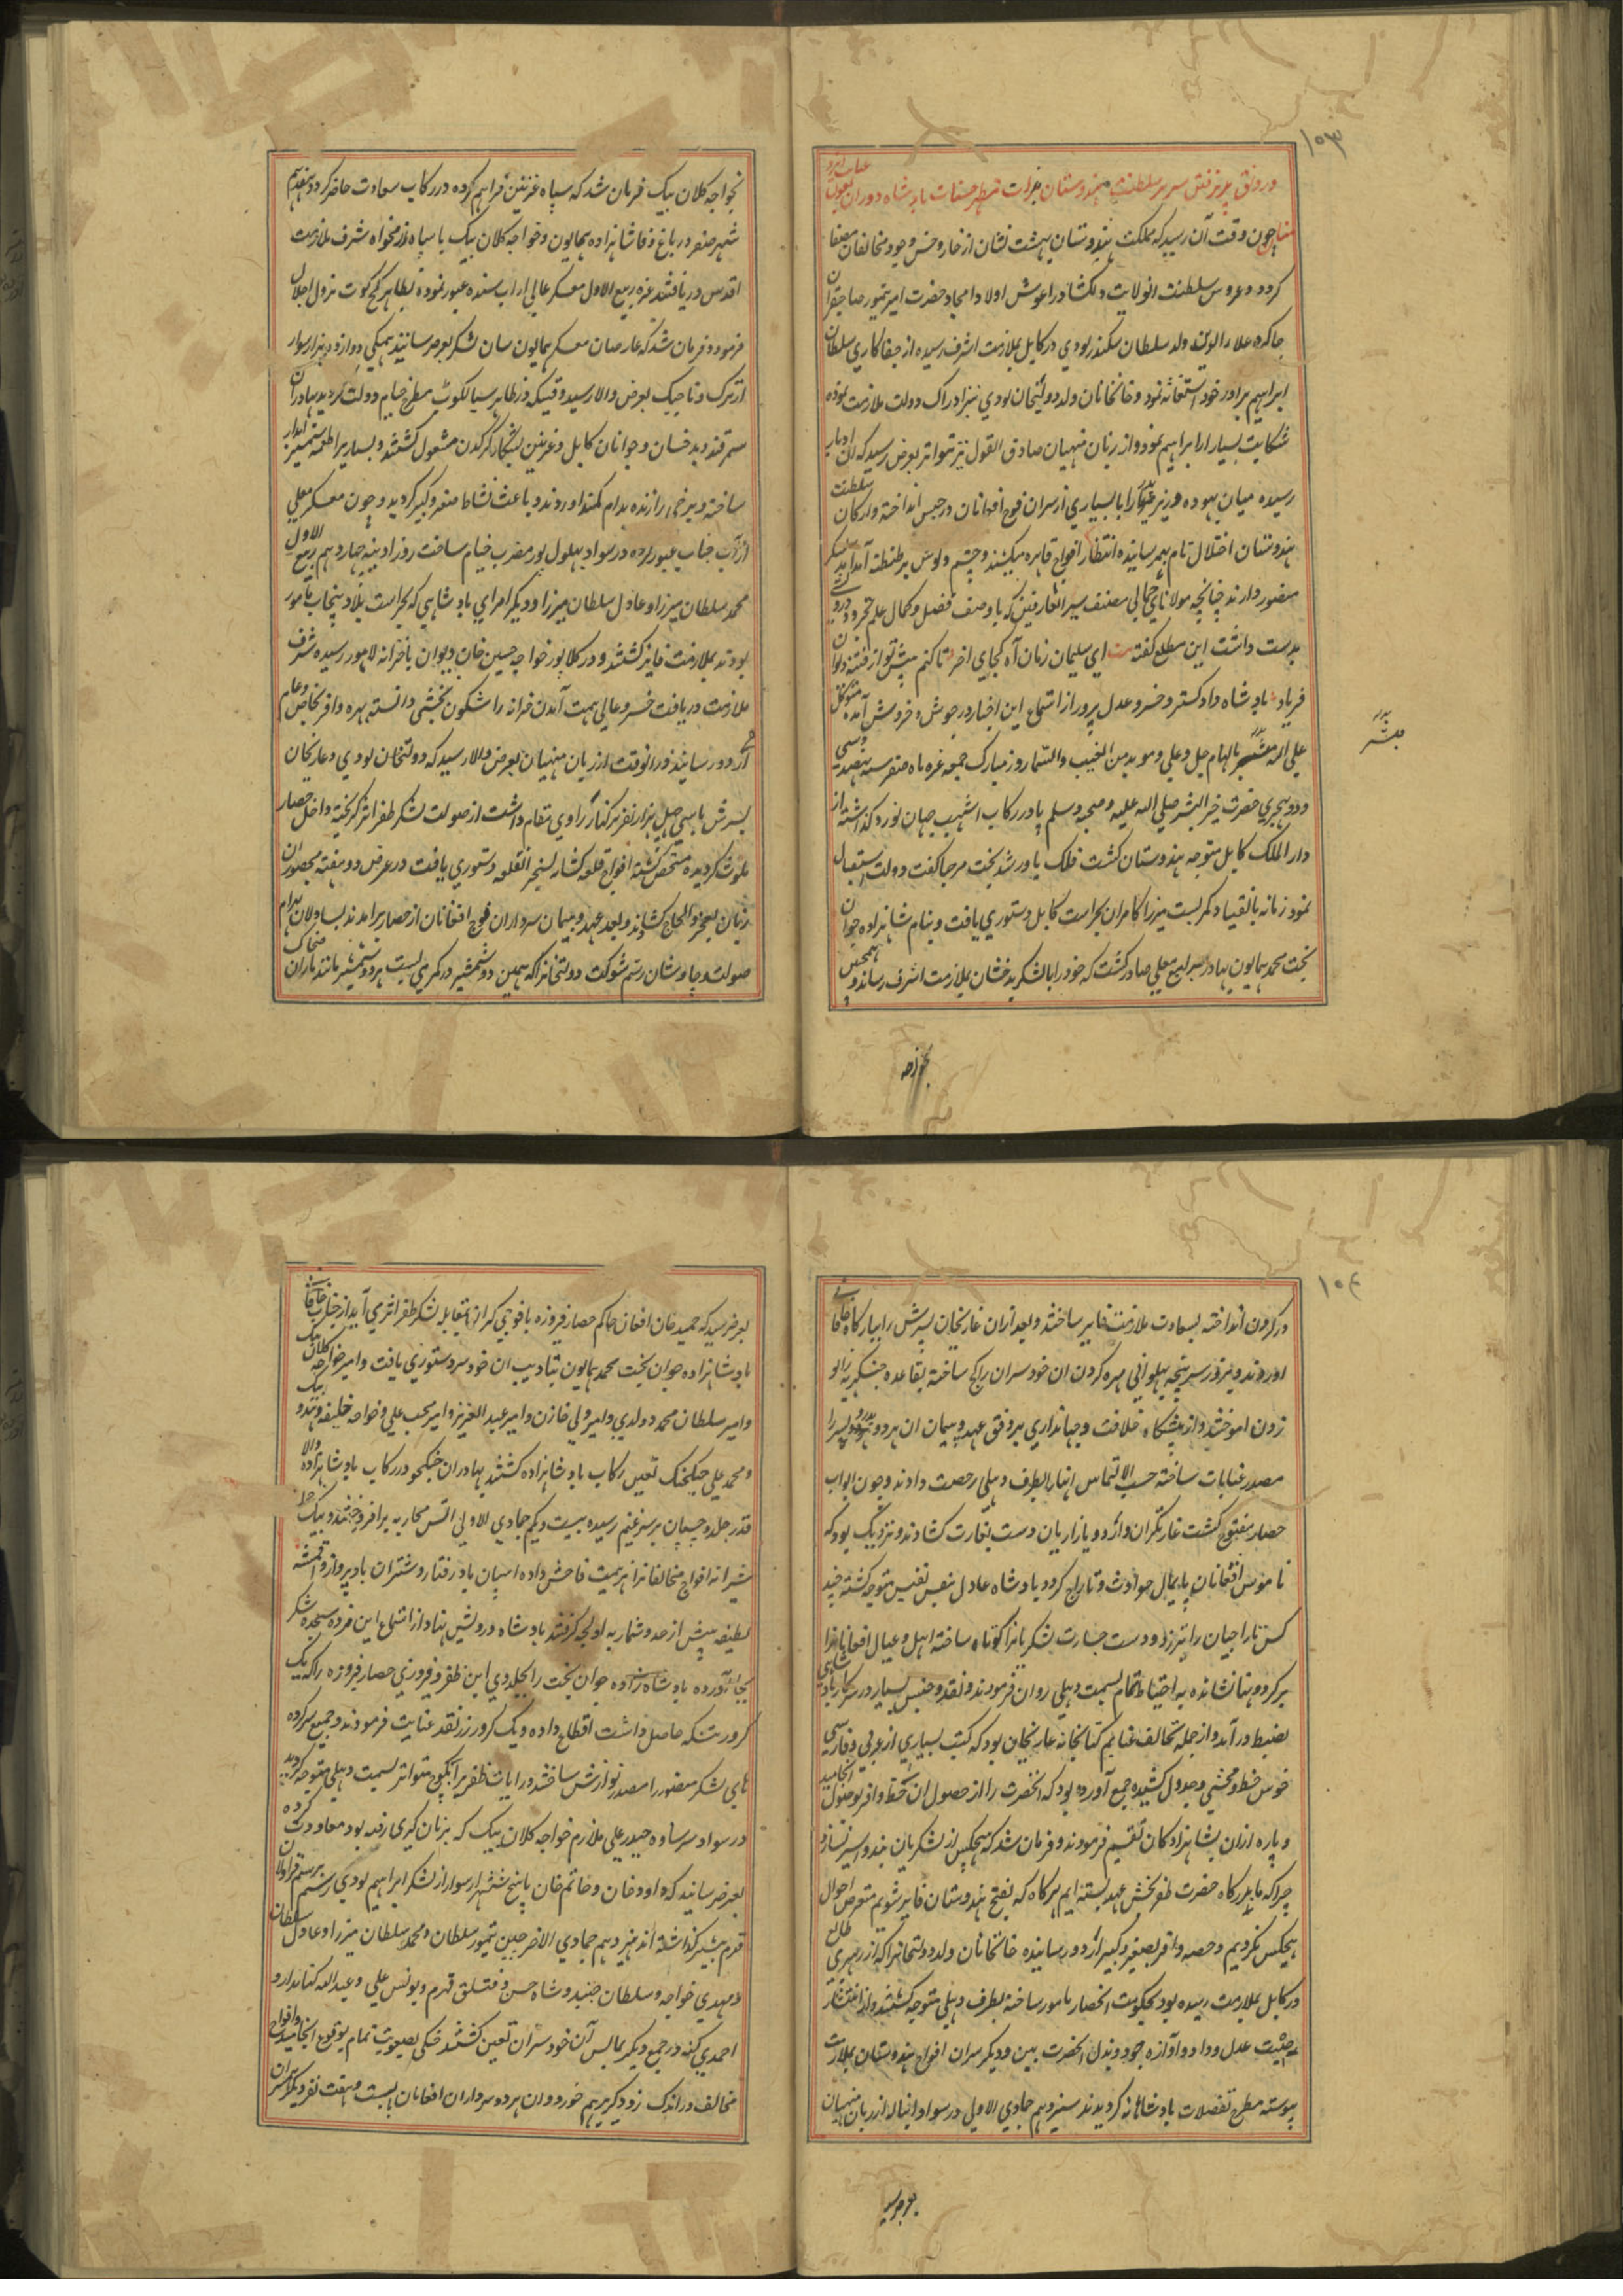 ۱۰۳
و رونق پذیرفتن سریر سلطنت هندوستان بذات مطهر صفات بادشاه دوران بعون
عنایت ایزدی
چون وقت آن رسید که مملکت هندوستان بهشت نشان از خار و خس وجود مخالفان مصفا
گردد و عروس سلطنت انولایت دلکشا در اغوش اولاد امجاد حضرت امیر تیمور صاحبقران
جا کرده علاء الدین ولد سلطان سکندر لودی در کابل بملازمت اشرف رسیده از جفا کاری سلطان
ابراهیم برادر خود استغاثه نمود و خانخانان ولد دولتخان لودی نیز ادراک دولت ملازمت نموده
شکایت بسیار از ابراهیم نمود و از زبان منهیان صادق القول نیز بتواتر بعرض رسید که ان
رسیده میان بهوده وزیر را با بسیاری از سران فوج افغانان در حبس انداخته و ارکان سلطنت
هندوستان اختلال تام بهم رسانیده انتظار افواج قاهره میکشند و چشم و گوش بر طنطنه آمد آمد لشکر
منصور دارند چنانچه مولانای جمالی مصنف سیر العارفین که با وصف فضل و کمال علم تجرد و درویشی
بدست داشت این مطلع گفته ای سلیمان زمان آه کجای اخر تا کنم پیش تو از فتنه دیوان
فریاد بادشاه دادگستر و خسرو عدل پرور از استماع این اخبار در جوش و خروش آمده متوکل
علی الله مبشر بالهام جلی و علی و موید من الغیب والسما روز مبارک جمعه غره ماه صفر سنه نهصد و سی
و دو هجری حضرت خیر البشر صلی الله علیه و صحبه وسلم پا در رکاب اشهب جهان نورد گذاشته از
دار الملک کابل متوجه هندوستان گشت فلک یاور شد بخت مرحبا گفت دولت استقبال
نمود زمانه بانقیاد کمر بست میرزا کامران بحراست کابل دستوری یافت و بنام شاهزاده جوان
بخت محمد همایون بهادر یرلیغ معلی صادر گشت که خود را با لشکر بدخشان بملازمت اشرف رساند و همچنین
مبشر
بخواجه
بخواجه کلان بیک فرمان شد که سپاه غزنین فراهم کرده در رکاب سعادت حاضر گردد هفدهم
شهر صفر در باغ وفا شاهزاده همایون و خواجه کلان بیک با سپاه رزمخواه شرف ملازمت
اقدس دریافتند غره ربیع الاول معسکر عالی از اب سند عبور نموده بظاهر کچه کوت نزول اجلال
فرمود و فرمان شد که عارضان معسکر همایون سان لشکر بعرض رسانیند همگی دوازده هزار سوار
از ترک و تاجیک بعرض والا رسید وقتیکه در ظاهر سیالکوت مطرح خیام دولت گردید بهادران
سمرقند و بدخشان و جوانان کابل و غزنین بشکار کرگدن مشغول گشتند و بسیار را طعمه شمشیر ابدار
ساخته و برخی را زنده بدام کمند اوردند و باعث نشاط صغیر و کبیر گردید و چون معسکر معلی
از آب چناب عبور کرده در سواد بهلول پور مضرب خیام ساخت روز ادینه چهاردهم ربیع الاول
محمد سلطان میرزا و عادل سلطان میرزا و دیگر امرای بادشاهی که بحراست بلاد پنجاب مامور
بودند بملازمت فایز گشتند و در کلانور خواجه حسین خان دیوان با خزانه لاهور رسیده شرف
ملازمت دریافت خسرو عالی همت آمدن خزانه را شگون بخشی دانسته بهره وافر بخاص و عام
اردو رسانیند در انوقت از زبان منهیان بعرض والا رسید که دولتخان لودی و غازیخان
پسرش با سی چهل هزار نفر بر کنار راوی مقام داشت از صولت لشکر ظفر اثر گریخته داخل حصار
ملوت گردیده متحصن گشته افواج قلعه کشا به تسخیر انقلعه دستوری یافت در عرض دو هفته محصوران
زبان بعجز و الحاح کشادند و بعد عهد و پیمان سرداران فوج افغانان از حصار برامدند یساولان بهرام
صولت و چاوشان رستم شوکت دولتخانرا که همین دو شمشیر در کمر می بست هر دو شمشیر مانند ماران ضحاک
۱۰۴
در گردن انداخته بسعادت ملازمت فایز ساختند و بعد ازان غازیخان پسرش را ببارگاه خاقانی
اوردند و بزور سرپنجه پهلوانی مهره گردن ان خودسران را کج ساخته بقاعده چنگیزیه زانو
زدن اموختند و از پیشگاه خلافت و جهانداری بر وفق عهد و پیمان ان هر دو پدر و پسر را
مصدر عنایات ساخته حسب الالتماس انها بطرف دهلی رخصت دادند و چون ابواب
حصار مفتوح گشت غارتگران و اردو بازاریان دست بغارت کشادند و نزدیک بود که
ناموس افغانان پایمال حوادث و تاراج گردد بادشاه عادل بنفس نفیس متوجه گشته چند
کس تاراجیان را بتیر زد و دست جسارت لشکریانرا کوتاه ساخته اهل و عیال افغانانرا
برگردونها نشانده به احتیاط تمام بسمت دهلی روان فرمودند و نقد و جنس بسیار در سرکار بادشاهی
بضبط درآمد و از جمله تحایف غنایم کتابخانه غازیخان بود که کتب بسیاری از عربی و فارسی
خوش خط و محشی و جدول کشیده جمع آورده بود که انحضرت را از حصول ان حظ وافر بوصول انجامید
و پاره ازان بشاهزادگان تقسیم فرمودند و فرمان شد که هیچکس از لشکریان هندو اسیر نسازد
چرا که ما بدرگاه حضرت ظفر بخش عهد بسته ایم هرگاه که بفتح هندوستان فایز شویم متعرض احوال
هیچکس نگردیم و حصه وافر بصغیر و کبیر اردو رسانیده خانخانان ولد دولتخانرا که از رهبری طالع
در کابل بملازمت رسیده بود بحکومت انحصار مامور ساخته بطرف دهلی متوجه گشتند و از انتشار
حیثیت عدل و داد و آوازه جود و بذل انحضرت ببن و دیگر سران افواج هندوستان بملازمت
پیوسته مطرح تفضلات بادشاهانه گردیدند سیزدهم جمادی الاولی در سواد انباله از زبان منهیان
بعرض رسید
بعرض رسید که حمید خان افغان حاکم حصار فیروزه با فوجی گران بمقابله لشکر ظفر اثر می آید از جناب خاقانی
بادشاهزاده جوان بخت محمد همایون بتادیب ان خودسر دستوری یافت و امیر خواجه کلان بیک
و امیر سلطان محمد دولدی و امیر ولی خازن و امیر عبد العزیز و امیر محب علی و خواجه خلیفه و هندو بیک
و محمد علی جنکجنک تعین رکاب بادشاهزاده گشتند بهادران جنگجو در رکاب بادشاهزاده والا
قدر جلد و چسپان بر سر غنیم رسیده بیست و یکم جمادی الاولی اتش محاربه برافروختند و بیک حمله
شیرانه افواج مخالفانرا هزیمت فاحش داده اسپان باد رفتار و شتران بادپرواز و اقمشه
لطیفه بیش از حد و شمار به اولجه گرفتند بادشاه درویش نهاد از استماع این مژده سجده شکر
بجا آورده بادشاهزاده جوان بخت را بجلدوی این ظفر و فیروزی حصار فیروزه را که یک
کرور تنکه حاصل داشت اقطاع داده و یک کرور زر نقد عنایت فرمودند و جمیع سرکرده
های لشکر منصور را مصدر نوازش ساختند و رایات ظفر برا بکوچ متواتر بسمت دهلی متوجه گردید
در سواد سرساوه حیدر علی ملازم خواجه کلان بیک که بزبان گیری رفته بود معاودت کرده
بعرض رسانید که داود خان و حاتم خان با پنج شش هزار سوار از لشکر ابراهیم لودی برسم قراولان
قدم پیشتر گذاشته اند هیزدهم جمادی الاخر چین تیمور سلطان و محمد سلطان میرزا و عادل سلطان
و مهدی خواجه و سلطان جنید و شاه حسن و قتلق قدم و یونس علی و عبد الله کتابدار و
احمدی و جمع دیگر بمالش آن خودسران تعین گشتند جنگی بصعوبت تمام بوقوع انجامید و افواج
مخالف در اندک زد و گیر برهم خورد و ان هر دو سرداران افغانان با بیست و هفت نفر دیگر از سران